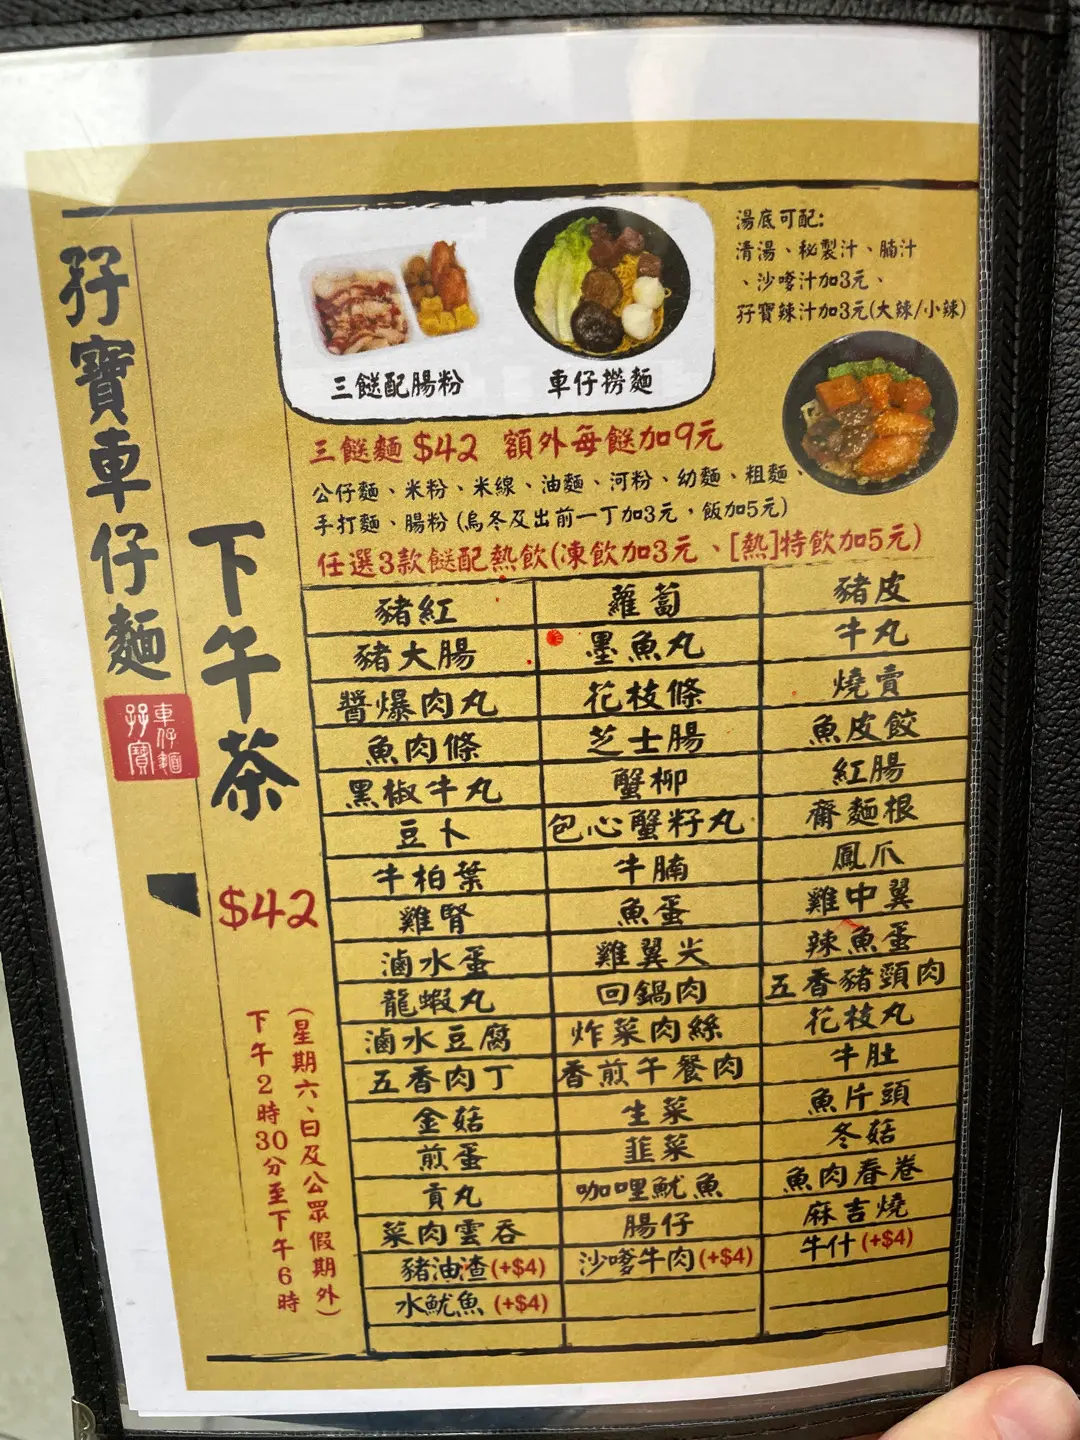 孖寶車仔麵
孖寶
車仔麵
下午茶
$42
(星期六、日及公眾假期外)
下午2時30分至下午6時
三餸配腸粉
車仔撈麵
湯底可配:
清湯、秘製汁、腩汁
、沙嗲汁加3元、
孖寶辣汁加3元(大辣/小辣)
三餸麵 $42 額外每餸加9元
公仔麵、米粉、米線、油麵、河粉、幼麵、粗麵、
手打麵、腸粉 (烏冬及出前一丁加3元，飯加5元)
任選3款餸配熱飲(凍飲加3元、[熱]特飲加5元)
豬紅 蘿蔔 豬皮
豬大腸 墨魚丸 牛丸
醬爆肉丸 花枝條 燒賣
魚肉條 芝士腸 魚皮餃
黑椒牛丸 蟹柳 紅腸
豆卜 包心蟹籽丸 齋麵根
牛柏葉 牛腩 鳳爪
雞腎 魚蛋 雞中翼
滷水蛋 雞翼尖 辣魚蛋
龍蝦丸 回鍋肉 五香豬頸肉
滷水豆腐 炸菜肉絲 花枝丸
五香肉丁 香煎午餐肉 牛肚
金菇 生菜 魚片頭
煎蛋 韭菜 冬菇
貢丸 咖哩魷魚 魚肉春卷
菜肉雲吞 腸仔 麻吉燒
豬油渣(+$4) 沙嗲牛肉(+$4) 牛什(+$4)
水魷魚 (+$4)